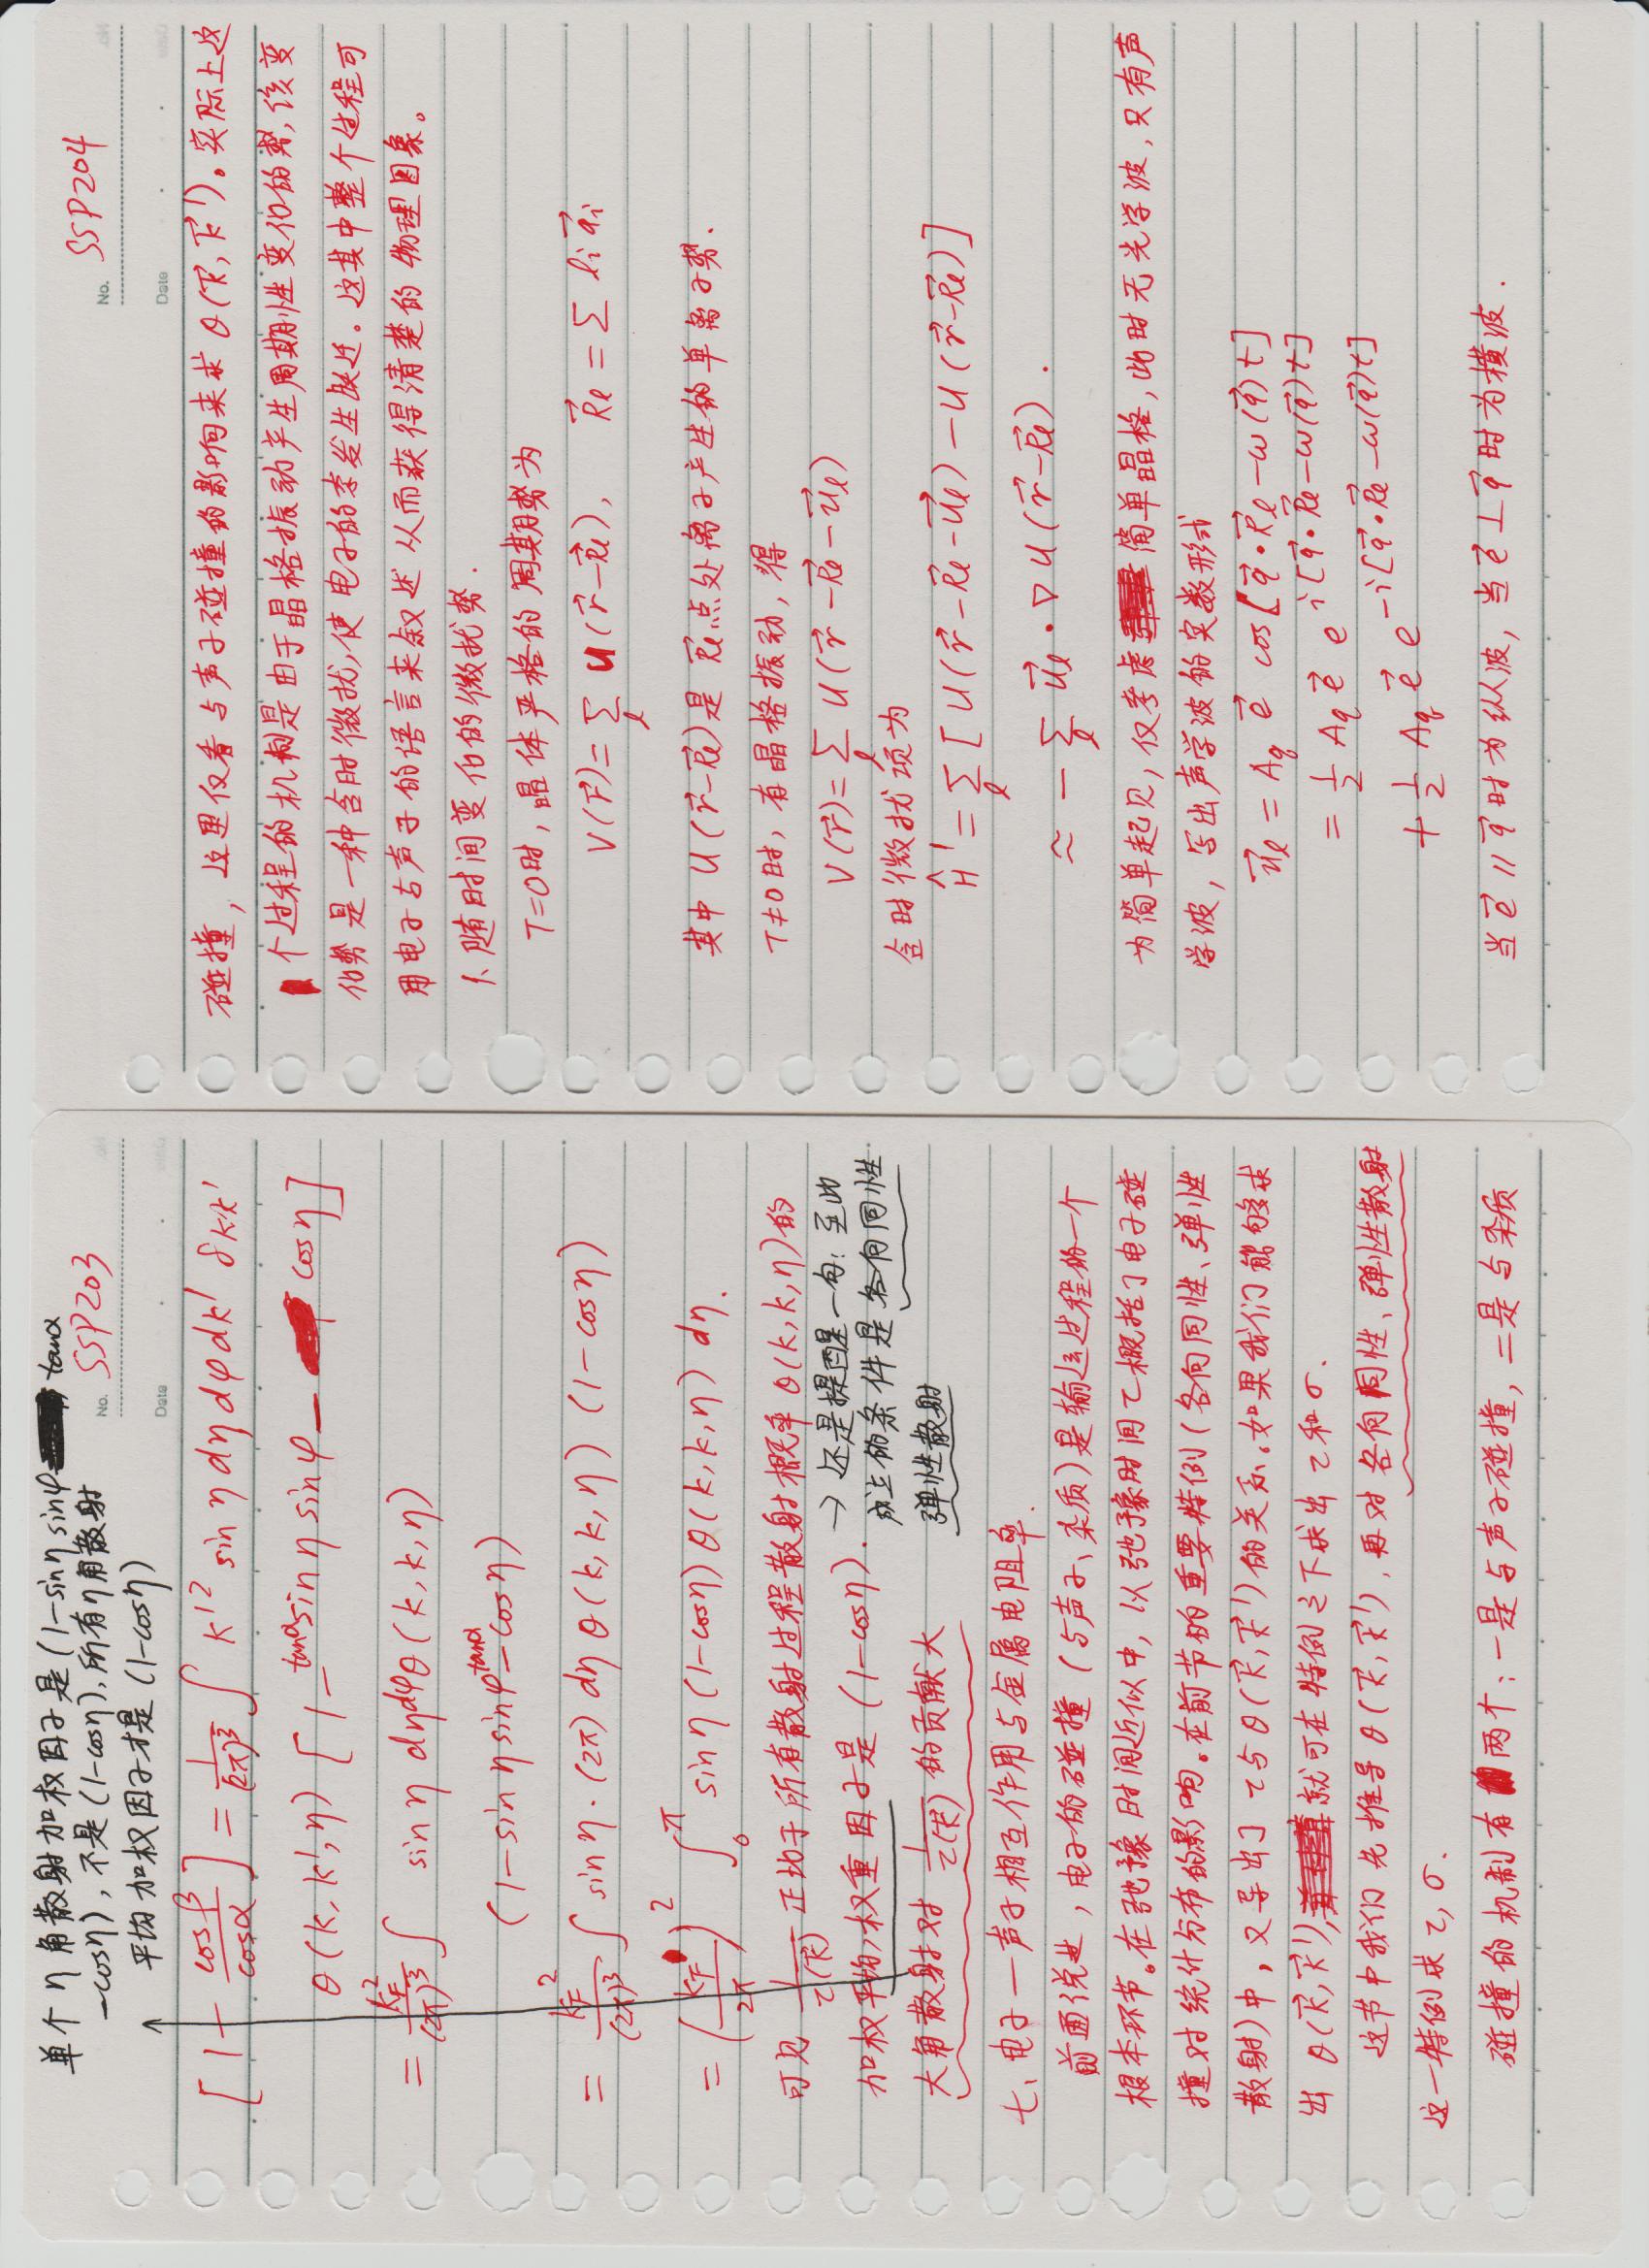 单个η角散射加权因子是(1-sinη sinφ tanα
-cosη),不是(1-cosη),所有η角散射
平均加权因子才是(1-cosη)
No. SSP203
Date
[1 - cosβ/cosα] = 1/(2π)³ ∫ k'² sinη dη dφ dk' δkk'
θ(k, k', η) [1 - tanα sinη sinφ - cosη]
= k_F²/(2π)³ ∫ sinη dηdφ θ(k, k, η)
(1 - sinη sinφ tanα - cosη)
= k_F²/(2π)³ ∫ sinη·(2π) dη θ(k, k, η) (1-cosη)
= (k_F/2π)² ∫₀^π sinη (1-cosη) θ(k, k, η) dη.
可见 1/τ(k⃗) 正比于所有散射过程散射概率θ(k, k, η)的
加权平均,权重因子是(1-cosη).
→ 还是提醒一句:至此
成立的条件是各向同性
弹性散射
大角散射对 1/τ(k⃗) 的贡献大
七、电子—声子相互作用与金属电阻率.
前面说过,电子的碰撞(与声子、杂质)是输运过程的一个
根本环节。在弛豫时间近似中,以弛豫时间τ概括了电子碰
撞对统计分布的影响。在前节的重要特例(各向同性、弹性
散射)中,又导出了τ与θ(k⃗, k⃗')的关系。如果我们能够求
出θ(k⃗, k⃗'),就可在特例之下求出τ和σ.
这节中我们先推导θ(k⃗, k⃗'),再对各向同性、弹性散射
这一特例求τ, σ.
碰撞的机制有两个:一是与声子碰撞,二是与杂质
No. SSP204
Date
碰撞,这里仅看与声子碰撞的影响来求θ(k⃗, k⃗')。实际上这
个过程的机制是由于晶格振动产生周期性变化的势,该变
化势是一种含时微扰,使电子的态发生跃迁。这其中整个过程可
用电子与声子的语言来叙述从而获得清楚的物理图象。
1、随时间变化的微扰势.
T=0时,晶体严格的周期势为
V(r⃗) = Σ_l u(r⃗-R⃗l), R⃗l = Σ li a⃗i
其中 U(r⃗-R⃗l)是R⃗l点处离子产生的单离子势.
T≠0时,有晶格振动,得
V(r⃗) = Σ_l U(r⃗-R⃗l-u⃗l)
含时微扰项为
Ĥ' = Σ_l [U(r⃗-R⃗l-u⃗l) - U(r⃗-R⃗l)]
≈ - Σ_l u⃗l·∇U(r⃗-R⃗l).
为简单起见,仅考虑简单晶格,此时无光学波,只有声
学波,写出声学波的实数形式
u⃗l = Aq e⃗ cos[q⃗·R⃗l - ω(q⃗)t]
= 1/2 Aq e⃗ e^{i[q⃗·R⃗l - ω(q⃗)t]}
+ 1/2 Aq e⃗ e^{-i[q⃗·R⃗l - ω(q⃗)t]}
当e⃗∥q⃗时为纵波,当e⃗⊥q⃗时为横波.